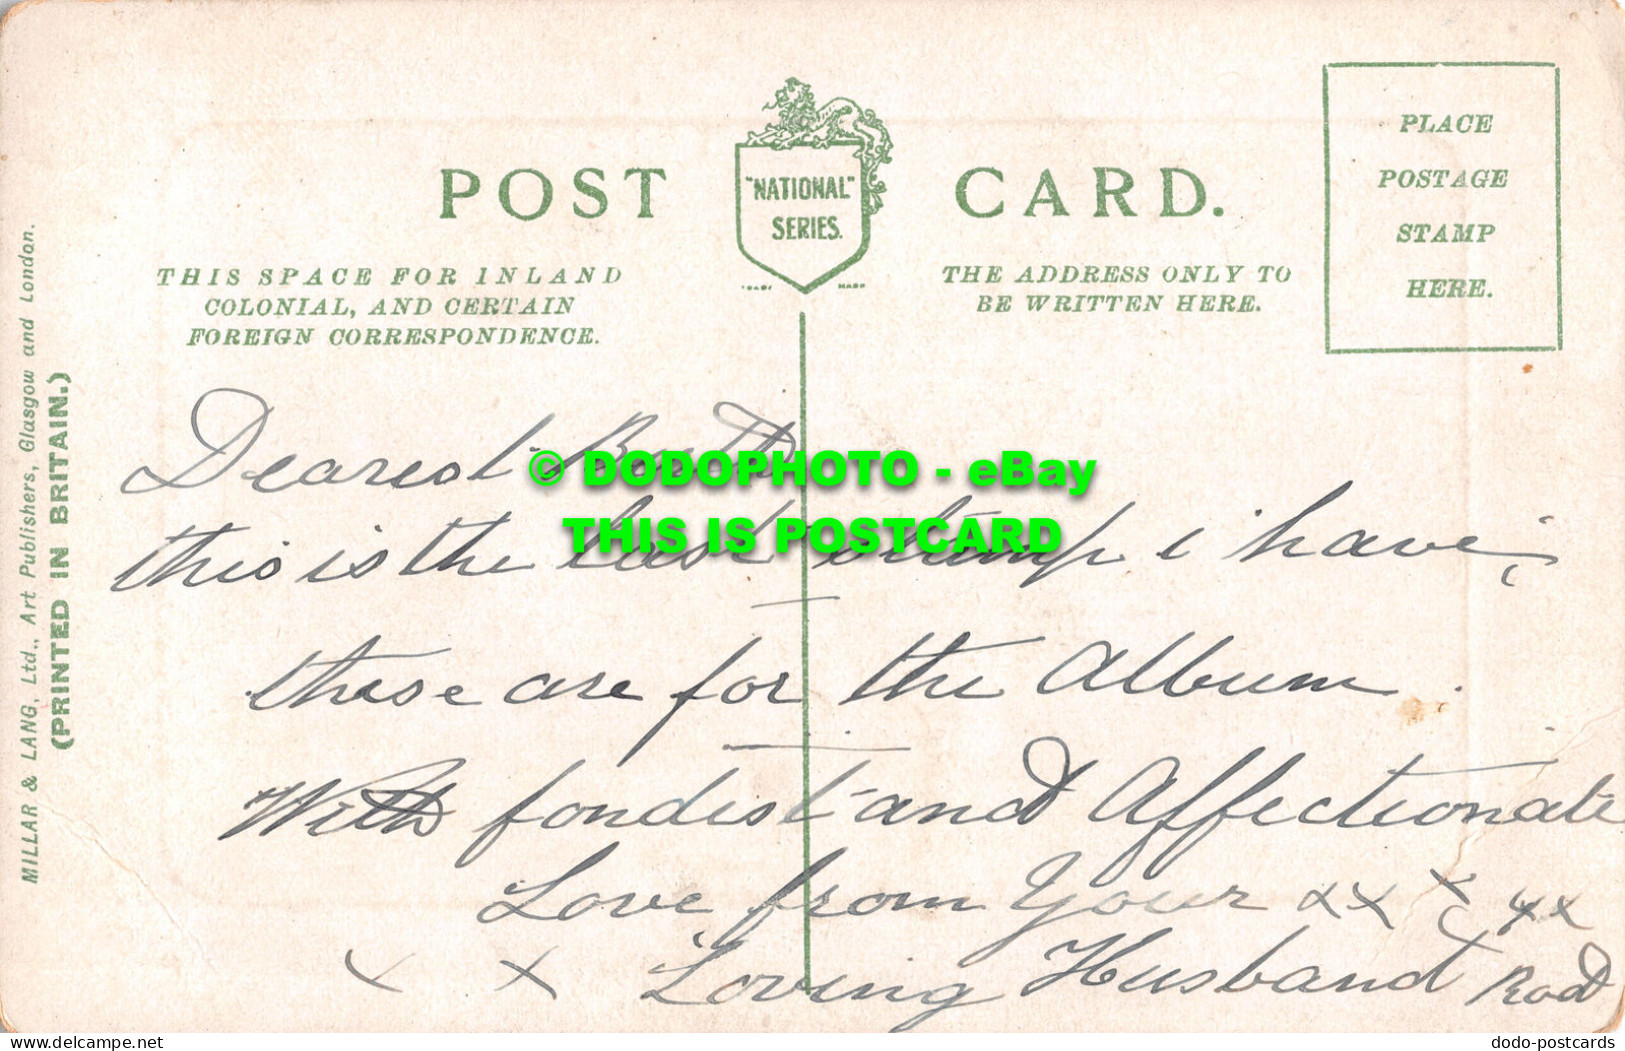 POST CARD.
"NATIONAL"
SERIES.
TRADE MARK
PLACE
POSTAGE
STAMP
HERE.
THIS SPACE FOR INLAND
COLONIAL, AND CERTAIN
FOREIGN CORRESPONDENCE.
THE ADDRESS ONLY TO
BE WRITTEN HERE.
MILLAR & LANG, Ltd., Art Publishers, Glasgow and London.
(PRINTED IN BRITAIN.)
Dearest
this is the last stamp i have,
these are for the Album.
With fondest and Affectionate
Love from Your xx x xx
x x Loving Husband Rod
© DODOPHOTO - eBay
THIS IS POSTCARD
www.delcampe.net
dodo-postcards